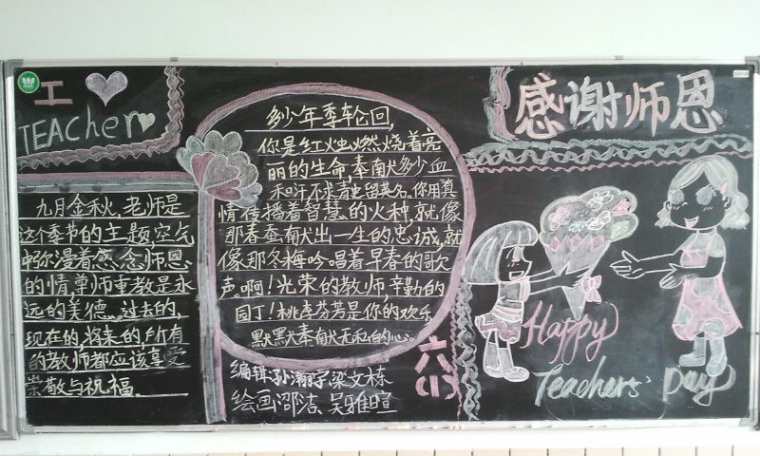 I
TEACHer
九月金秋,老师是
这个季节的主题,空气
中弥漫着感念师恩
的情尊师重教是永
远的美德。过去的,
现在的,将来的,所有
的教师都应该享受
崇敬与祝福。
多少年季轮回,
你是红烛燃烧着亮
丽的生命奉献多少血
和汗不求青史留英名,你用真
情传播着智慧的火种,就像
那春蚕献出一生的忠诚,就
像那冬梅吟唱着早春的歌
声,啊!光荣的教师,辛勤的
园丁!桃李芬芳是你的欢乐
默默奉献无私的心。
六
(1)
编辑:孙瀚宇梁文栋
绘画邵洁、吴雅暄
感谢师恩
Happy
Teachers' Day